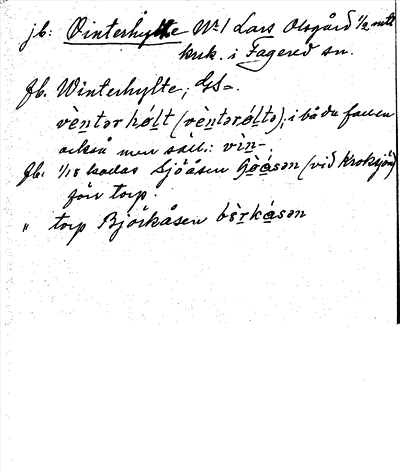 jb: Vinterhylte No 1 Lars Olsgård 1/2 mtl
krk. i Fagered sn.
fb. Winterhylte, GS=.
vèntər hǿlt (vèntərǿltə); i båda fallen
också men säll.: vìn-.
fb. 1/18 kallas Sjöåsen (vid Kroksjön)
förr torp.
" torp Björkåsen bèrkåsən